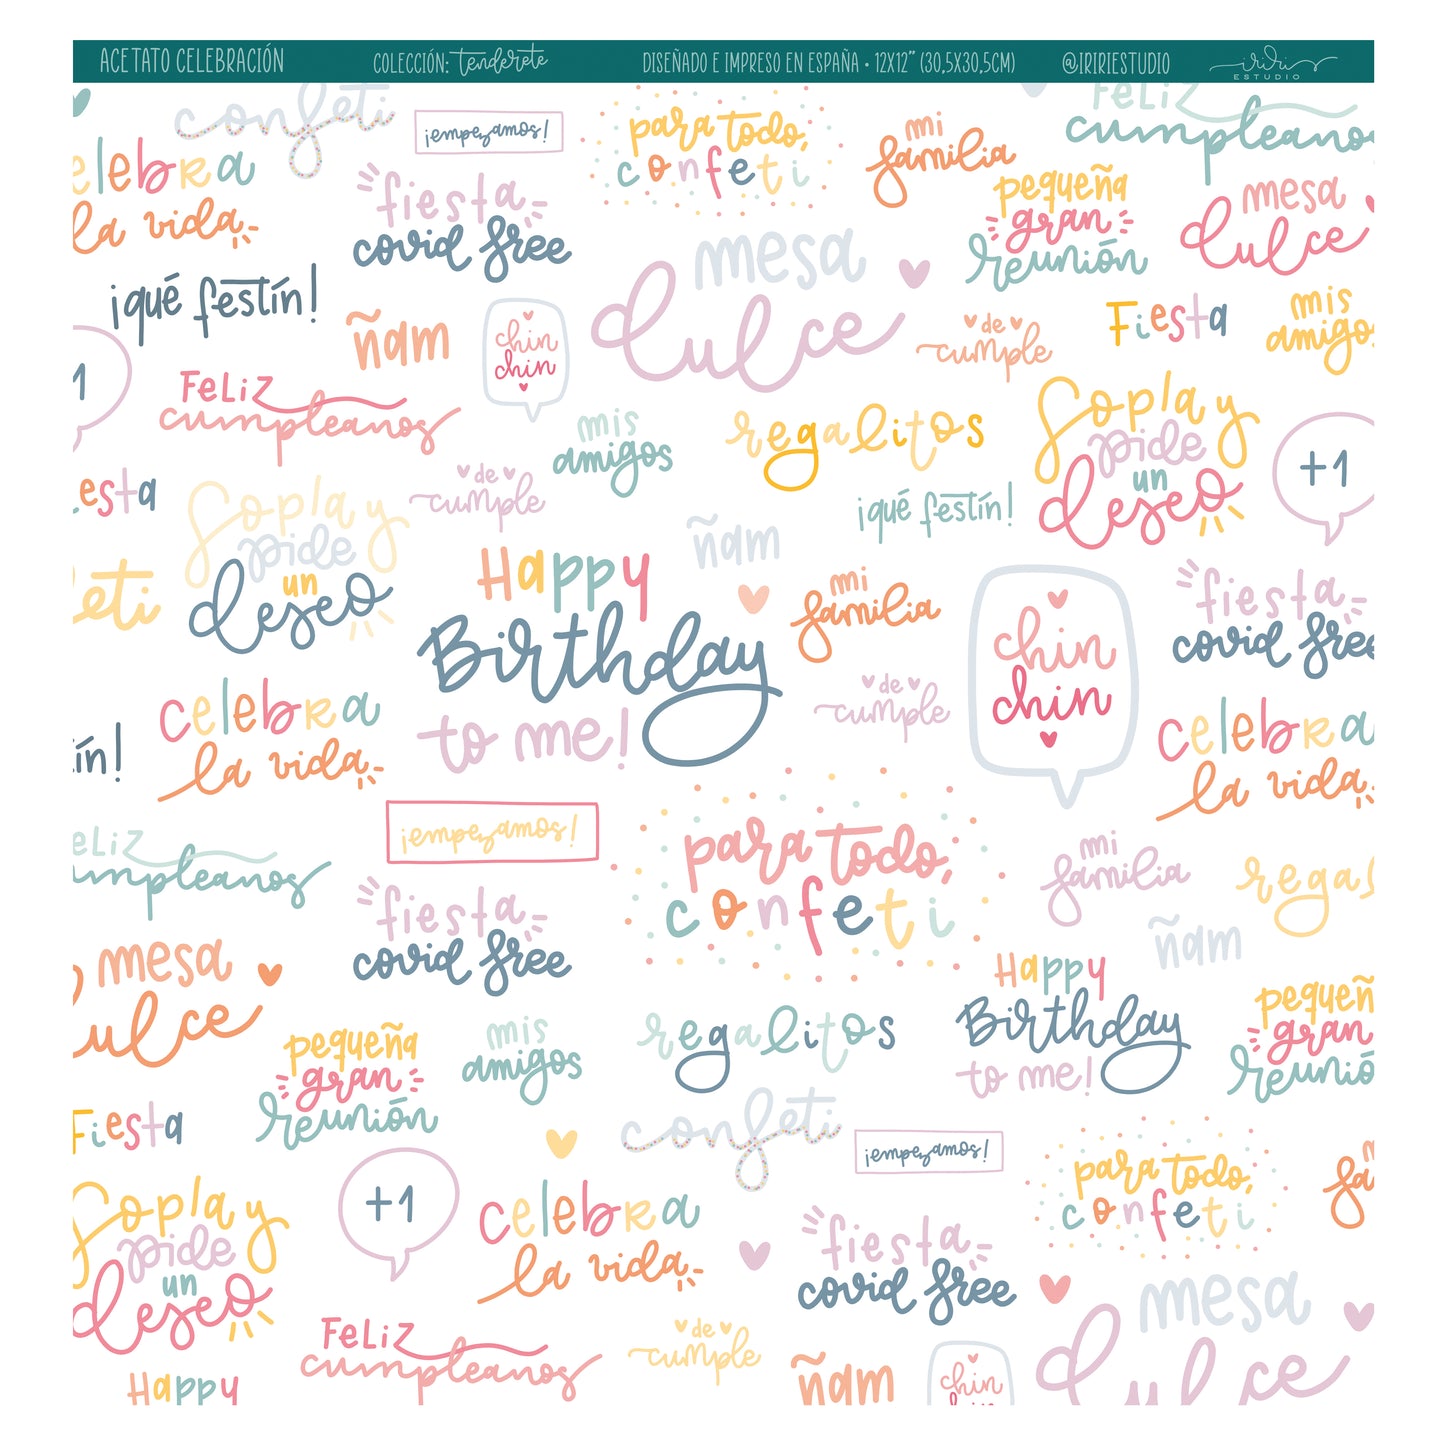 ACETATO CELEBRACIÓN
COLECCIÓN: Tenderete
DISEÑADO E IMPRESO EN ESPAÑA • 12X12" (30,5X30,5CM)
@IRIRIESTUDIO
iriri
ESTUDIO
confeti
¡empezamos!
para todo,
confeti
mi
familia
FELIZ
cumpleano
elebra
la vida
fiesta
covid free
pequeña
gran
reunión
mesa
dulce
mesa
dulce
¡qué festín!
ñam
chin
chin
de
cumple
Fiesta
mis
amigo
1
FELIZ
cumpleanos
mis
amigos
regalitos
Sopla y
pide
un
deseo
+1
iesta
Sopla y
pide
un
deseo
de
cumple
ñam
¡qué festín!
eti
Happy
Birthday
to me!
mi
familia
chin
chin
fiesta
covid free
celebra
la vida
de
cumple
celebra
la vida
ín!
eliz
umpleanos
¡empezamos!
para todo,
confeti
mi
familia
regal
fiesta
covid free
ñam
mesa
ulce
Happy
Birthday
to me!
pequeñ
gran
reunió
pequeña
gran
reunión
mis
amigos
regalitos
Fiesta
confeti
¡empezamos!
para todo,
confeti
mi
fa
Sopla y
pide
un
deseo
+1
celebra
la vida
fiesta
covid free
mesa
dulce
FELIZ
cumpleanos
de
cumple
ñam
chin
Happy